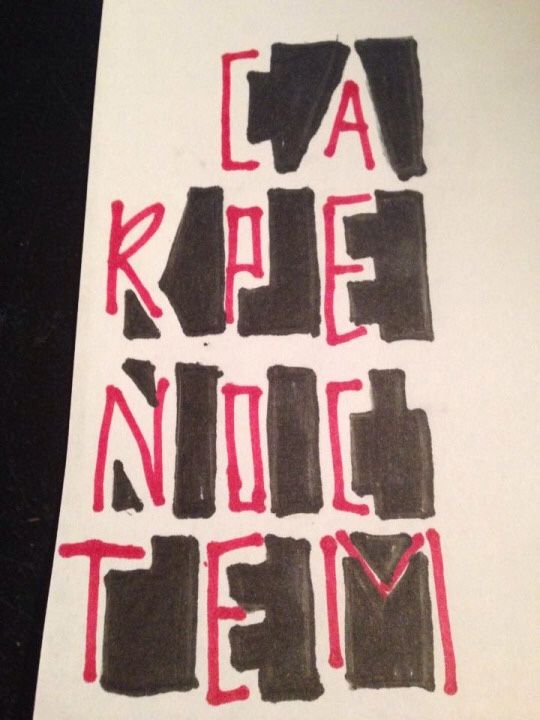 CA
RPE
NOC
TEM